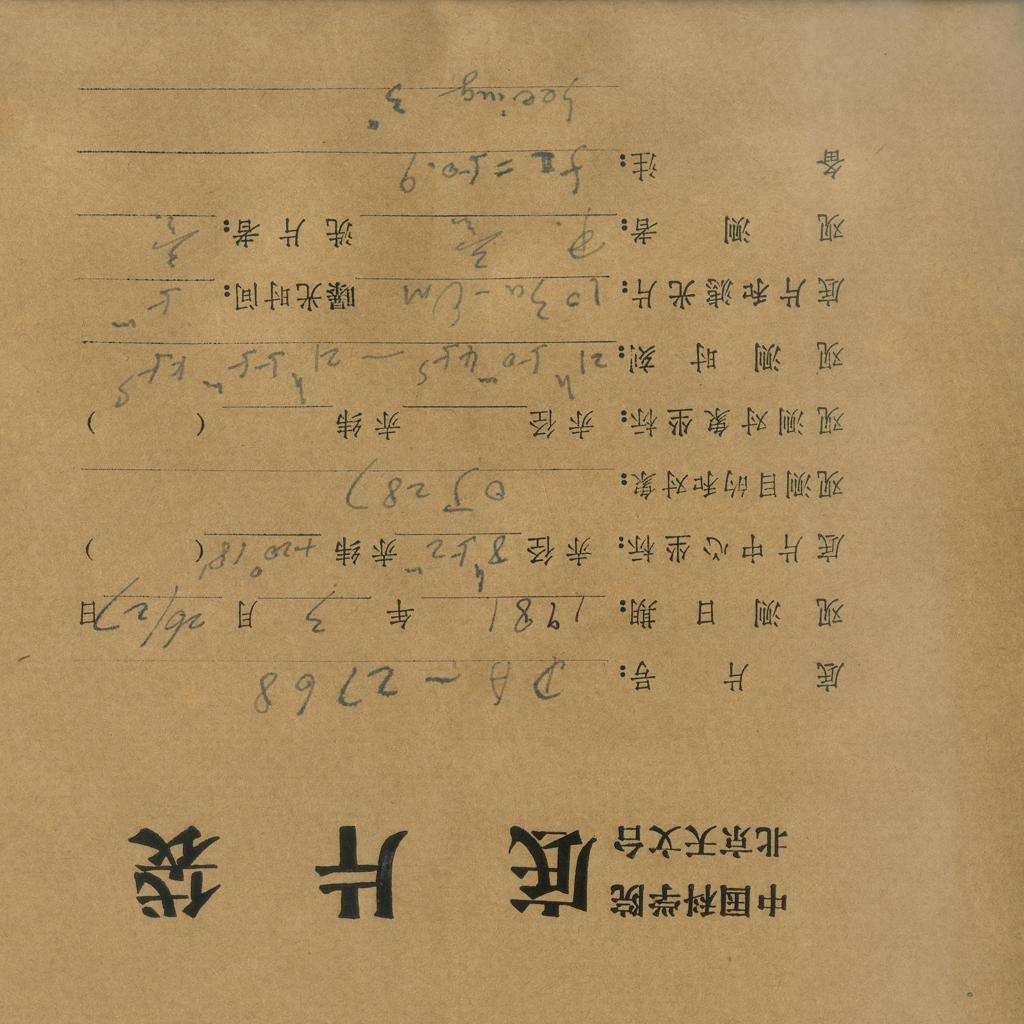 中国科学院
北京天文台
底片袋
底片号: DA-2768
观测日期: 1981年3月26/27日
底片中心坐标: 赤径 8h52m 赤纬 +20°18′ ( )
观测目的和对象: OJ287
观测对象坐标: 赤径 赤纬 ( )
观测时刻: 21h50m45s — 21h55m45s
底片和滤光片: 103a-O 曝光时间: 5m
观测者: 洗片者:
备注: f2=50.9
Seeing 3"